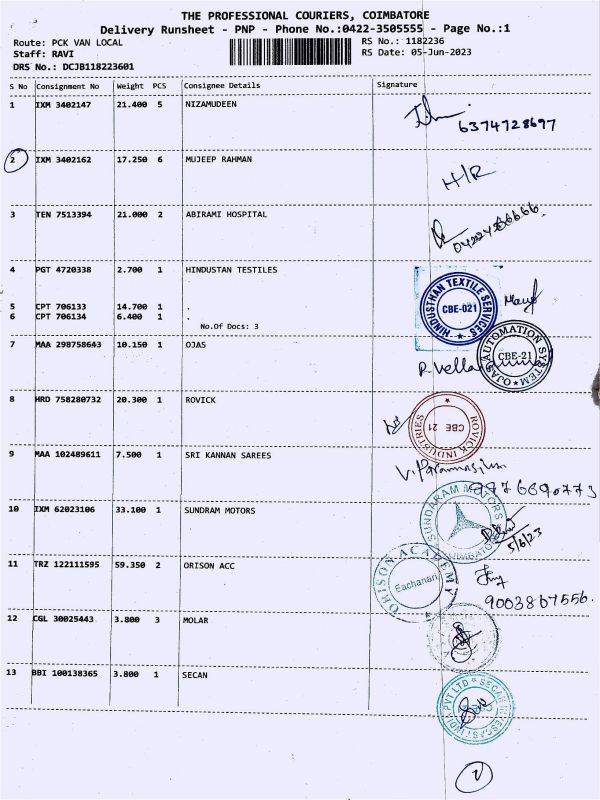 THE PROFESSIONAL COURIERS, COIMBATORE
Delivery Runsheet - PNP - Phone No.:0422-3505555 - Page No.:1
Route: PCK VAN LOCAL RS No.: 1182236
Staff: RAVI RS Date: 05-Jun-2023
DRS No.: DCJB118223601
S No Consignment No Weight PCS Consignee Details Signature
1 IXM 3402147 21.400 5 NIZAMUDEEN
6374728697
2 IXM 3402162 17.250 6 MUJEEP RAHMAN
H/R
3 TEN 7513394 21.000 2 ABIRAMI HOSPITAL
4 PGT 4720338 2.700 1 HINDUSTAN TESTILES
HINDUSTHAN TEXTILE SERVICES
CBE-021
5 CPT 706133 14.700 1
6 CPT 706134 6.400 1
No.Of Docs: 3
7 MAA 298758643 10.150 1 OJAS
OJAS AUTOMATION SYSTEM
CBE-21
P. Vella
8 HRD 758280732 20.300 1 ROVICK
ROVICK INDUSTRIES
CBE 21
9 MAA 102489611 7.500 1 SRI KANNAN SAREES
10 IXM 62023106 33.100 1 SUNDRAM MOTORS
SUNDARAM MOTORS
5/6/23
11 TRZ 122111595 59.350 2 ORISON ACC
ORISON ACADEMY
Eachanari
9003867556.
12 CGL 30025443 3.800 3 MOLAR
13 BBI 100138365 3.800 1 SECAN